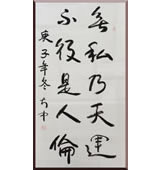 無私乃天運
不役是人倫
庚子年冬